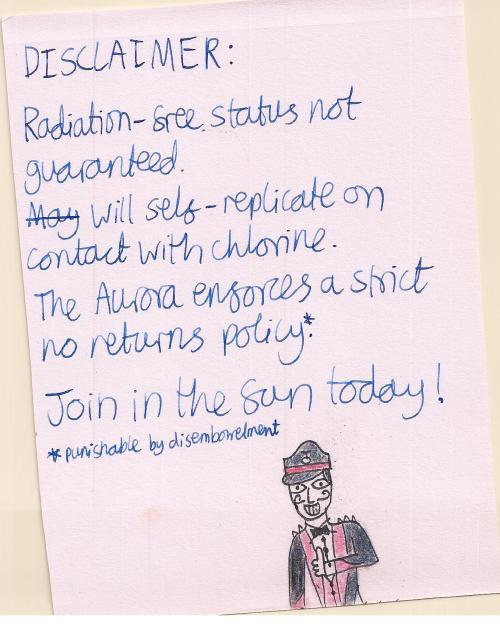 DISCLAIMER:
Radiation-free status not
guaranteed.
~~May~~ will self-replicate on
contact with chlorine.
The Aurora enforces a strict
no returns policy.*
Join in the fun today!
* punishable by disembowelment